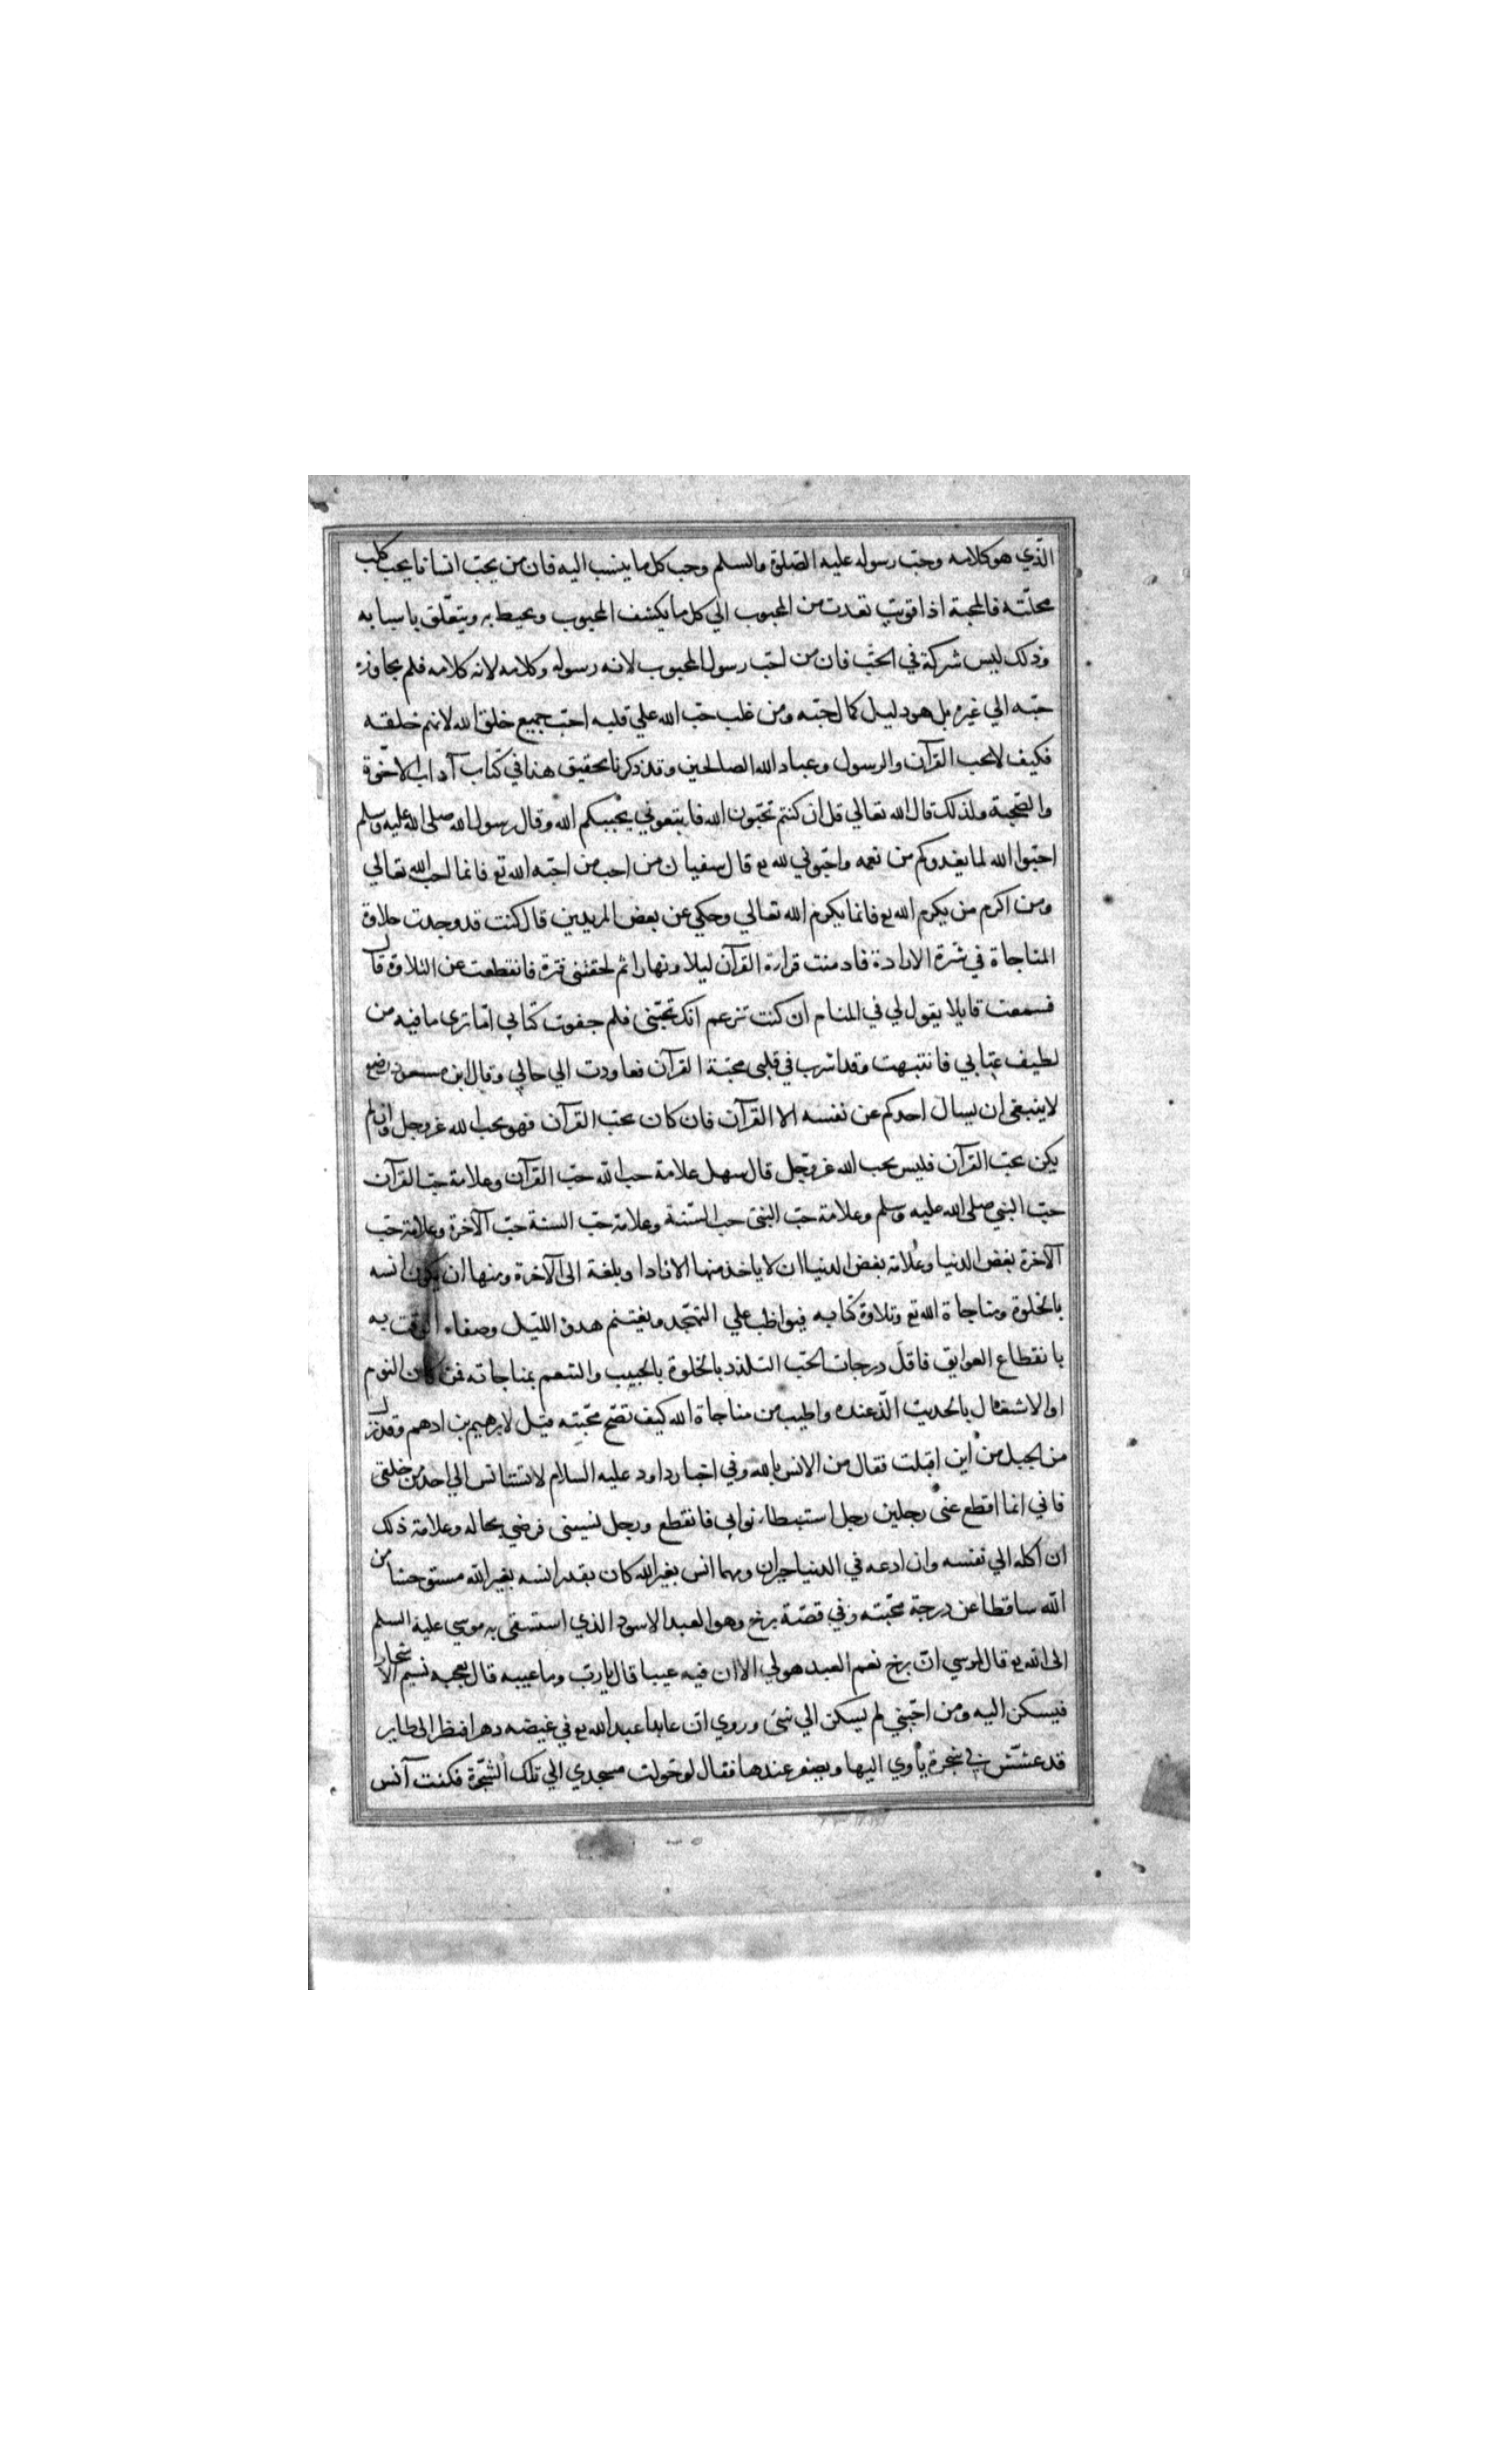 الّذي هو كلامه وحبّ رسوله عليه الصّلوة والسلم وحب كل ما ينسب اليه فان من يحبّ انسانا يحب كلب
محلّته فالمحبة اذا قويت تعدت من المحبوب الي كل ما يكنف المحبوب ويحيط به ويتعلّق باسبابه
وذلك ليس شركة في الحبّ فان من احبّ رسول المحبوب لانه رسوله وكلامه لانه كلامه فلم يجاوز
حبّه الي غيره بل هو دليل كمال حبّه ومن غلب حبّ الله علي قلبه احبّ جميع خلق الله لانهم خلقته
فكيف لا يحب القرآن والرسول وعباد الله الصالحين وقد ذكرنا تحقيق هذا في كتاب آداب الاخوّة
والصّحبة ولذلك قال الله تعالي قل ان كنتم تحبّون الله فاتبعوني يحببكم الله وقال رسول الله صلى الله عليه وسلم
احبّوا الله لما يغدوكم من نعمه واحبّوني لله تع قال سفيان من احب من احبّه الله تع فانما احب الله تعالي
ومن اكرم من يكرم الله تع فانما يكرم الله تعالي وحكي عن بعض المريدين قال كنت قد وجدت حلاوة
المناجاة في شرة الارادة فادمنت قراءة القرآن ليلا ونهارا ثم لحقتني فترة فانقطعت عن التلاوة قال
فسمعت قايلا يقول لي في المنام ان كنت تزعم انك تحبّني فلم جفوت كتابي اما ترى ما فيه من
لطيف عتابي فانتبهت وقد اشرب في قلبي محبّة القرآن فعاودت الي حالي وقال ابن مسعود رضع
لا ينبغي ان يسال احدكم عن نفسه الا القرآن فان كان يحبّ القرآن فهو يحب الله عز وجل وان لم
يكن يحبّ القرآن فليس يحب الله عز وجل قال سهل علامة حب الله حبّ القرآن وعلامة حبّ القرآن
حبّ النبي صلى الله عليه وسلم وعلامة حبّ النبيّ حب السّنة وعلامة حبّ السنة حبّ الآخرة وعلامة حبّ
الآخرة بغض الدنيا وعلامة بغض الدنيا ان لا ياخذ منها الا زادا وبلغة الى الآخرة ومنها ان يكون انسه
بالخلوة ومناجاة الله تع وتلاوة كتابه فيواظب علي التهجّد ويغتنم هدو الليل وصفاء الوقت به
بانقطاع العوايق فاقلّ درجات الحبّ التلذذ بالخلوة بالحبيب والتنعم بمناجاته فمن كان النوم
او الاشتغال بالحديث الّذ عنده واطيب من مناجاة الله كيف تصح محبّته قيل لابرهيم بن ادهم وقد نزل
من الجبل من اين اقبلت فقال من الانس بالله وفي اخبار داود عليه السلام لا تستانس الي احد من خلقي
فاني انما اقطع عني رجلين رجل استبطاء ثوابي فانقطع ورجل نسيني فرضي بحاله وعلامة ذلك
ان اكله الي نفسه وان ادعه في الدنيا حيران ومهما انس بغير الله كان بقدر انسه بغير الله مستوحشا من
الله ساقطا عن درجة محبّته وفي قصّة برخ وهو العبد الاسود الذي استسقى به موسي عليه السلم
الى الله تع قال لموسي انّ برخ نعم العبد هو لي الا ان فيه عيبا قال يا ربّ وما عيبه قال يعجبه نسيم الاسحار
فيسكن اليه ومن احبّني لم يسكن الي شئ وروي ان عابدا عبد الله تع في غيضه دهرا فنظر الى طاير
قد عشّش في شجرة ياوي اليها ويصفر عندها فقال لو حولت مسجدي الي تلك الشّجرة فكنت آنس